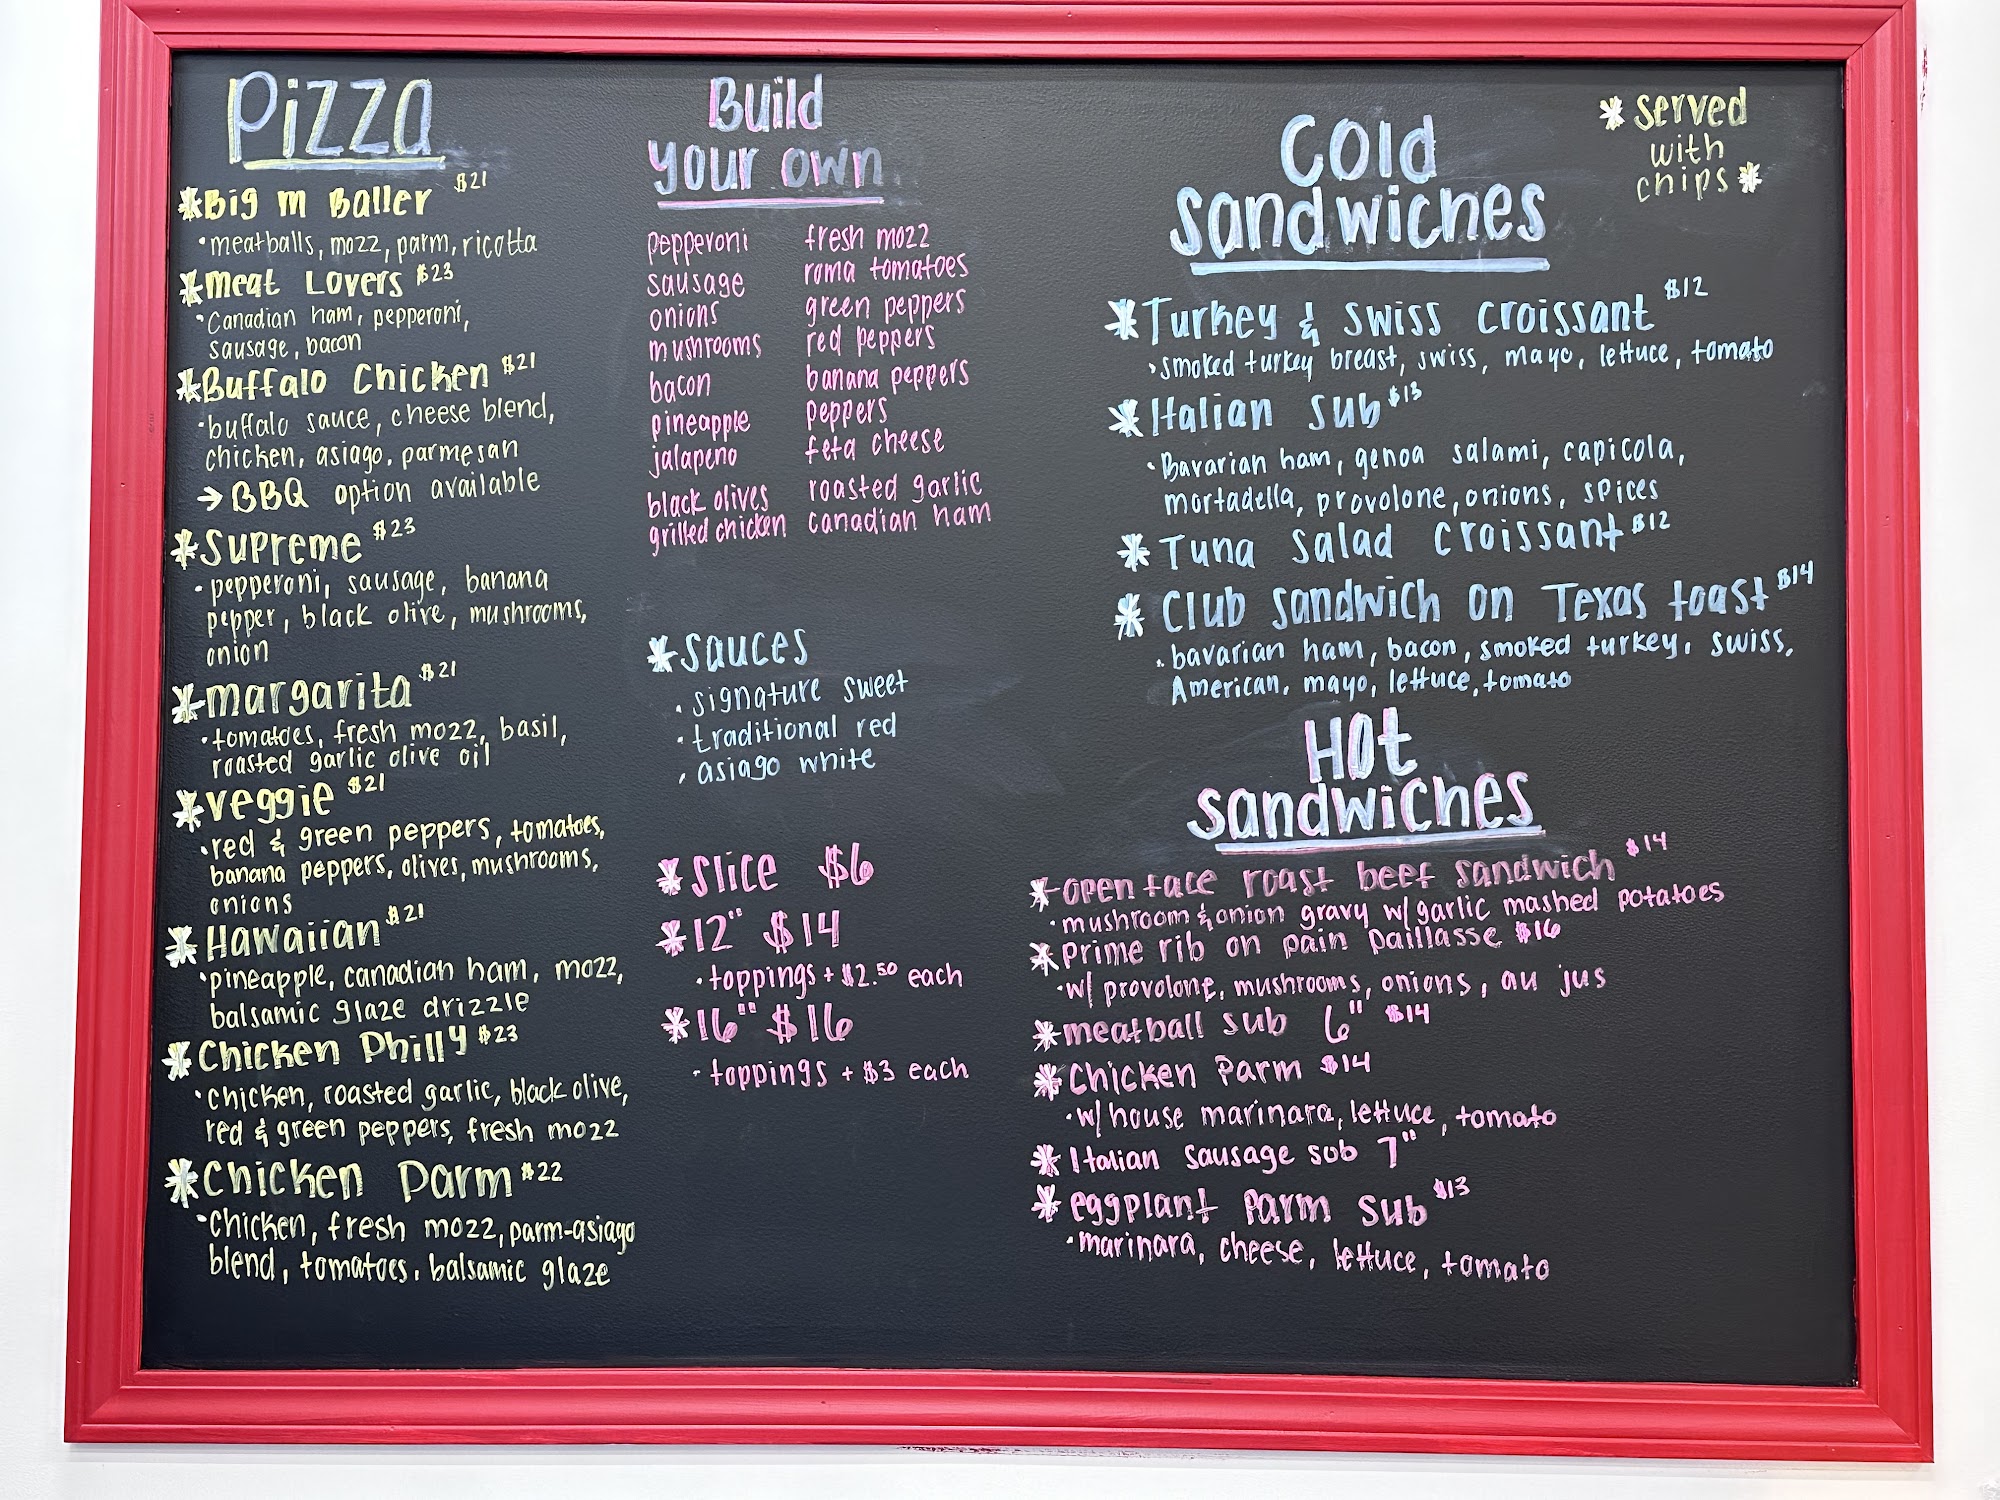 Pizza
*Big M Baller $21
·meatballs, mozz, parm, ricotta
*Meat Lovers $23
·Canadian ham, pepperoni,
sausage, bacon
*Buffalo Chicken $21
·buffalo sauce, cheese blend,
chicken, asiago, parmesan
→ BBQ option available
*Supreme $23
·pepperoni, sausage, banana
pepper, black olive, mushrooms,
onion
*margarita $21
·tomatoes, fresh mozz, basil,
roasted garlic olive oil
*veggie $21
·red & green peppers, tomatoes,
banana peppers, olives, mushrooms,
onions
*Hawaiian $21
·pineapple, canadian ham, mozz,
balsamic glaze drizzle
*Chicken Philly $23
·chicken, roasted garlic, black olive,
red & green peppers, fresh mozz
*Chicken Parm $22
·Chicken, fresh mozz, parm-asiago
blend, tomatoes, balsamic glaze
Build
your own
pepperoni
sausage
onions
mushrooms
bacon
pineapple
jalapeno
black olives
grilled chicken
fresh mozz
roma tomatoes
green peppers
red peppers
banana peppers
peppers
feta cheese
roasted garlic
canadian ham
*sauces
·signature sweet
·traditional red
·asiago white
*Slice $6
*12" $14
·toppings + $2.50 each
*16" $16
·toppings + $3 each
Cold
Sandwiches
*served
with
chips*
*Turkey & swiss croissant $12
·smoked turkey breast, swiss, mayo, lettuce, tomato
*Italian Sub $13
·Bavarian ham, genoa salami, capicola,
mortadella, provolone, onions, spices
*Tuna Salad croissant $12
*Club sandwich on Texas toast $14
·bavarian ham, bacon, smoked turkey, swiss,
American, mayo, lettuce, tomato
Hot
Sandwiches
*open face roast beef sandwich $14
·mushroom & onion gravy w/garlic mashed potatoes
*prime rib on pain paillasse $16
·w/ provolone, mushrooms, onions, au jus
*meatball sub 6" $14
*Chicken Parm $14
·w/house marinara, lettuce, tomato
*Italian Sausage sub 7"
*eggplant Parm Sub $13
·marinara, cheese, lettuce, tomato